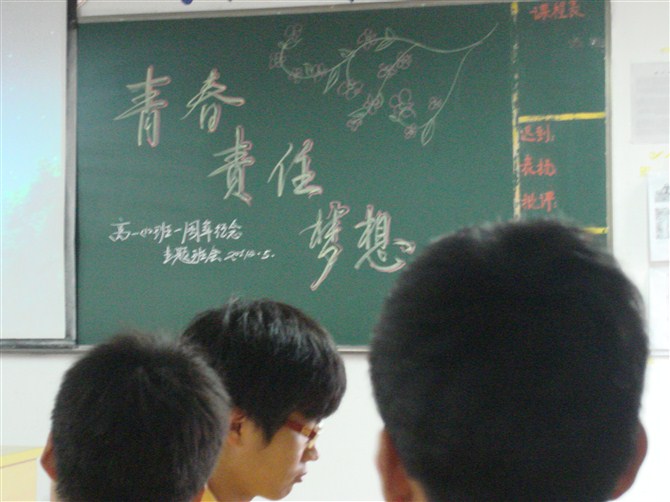 青春
責任
梦想
高一四班一周年纪念
主题班会 2014.5.
课程表
迟到:
表扬
批评